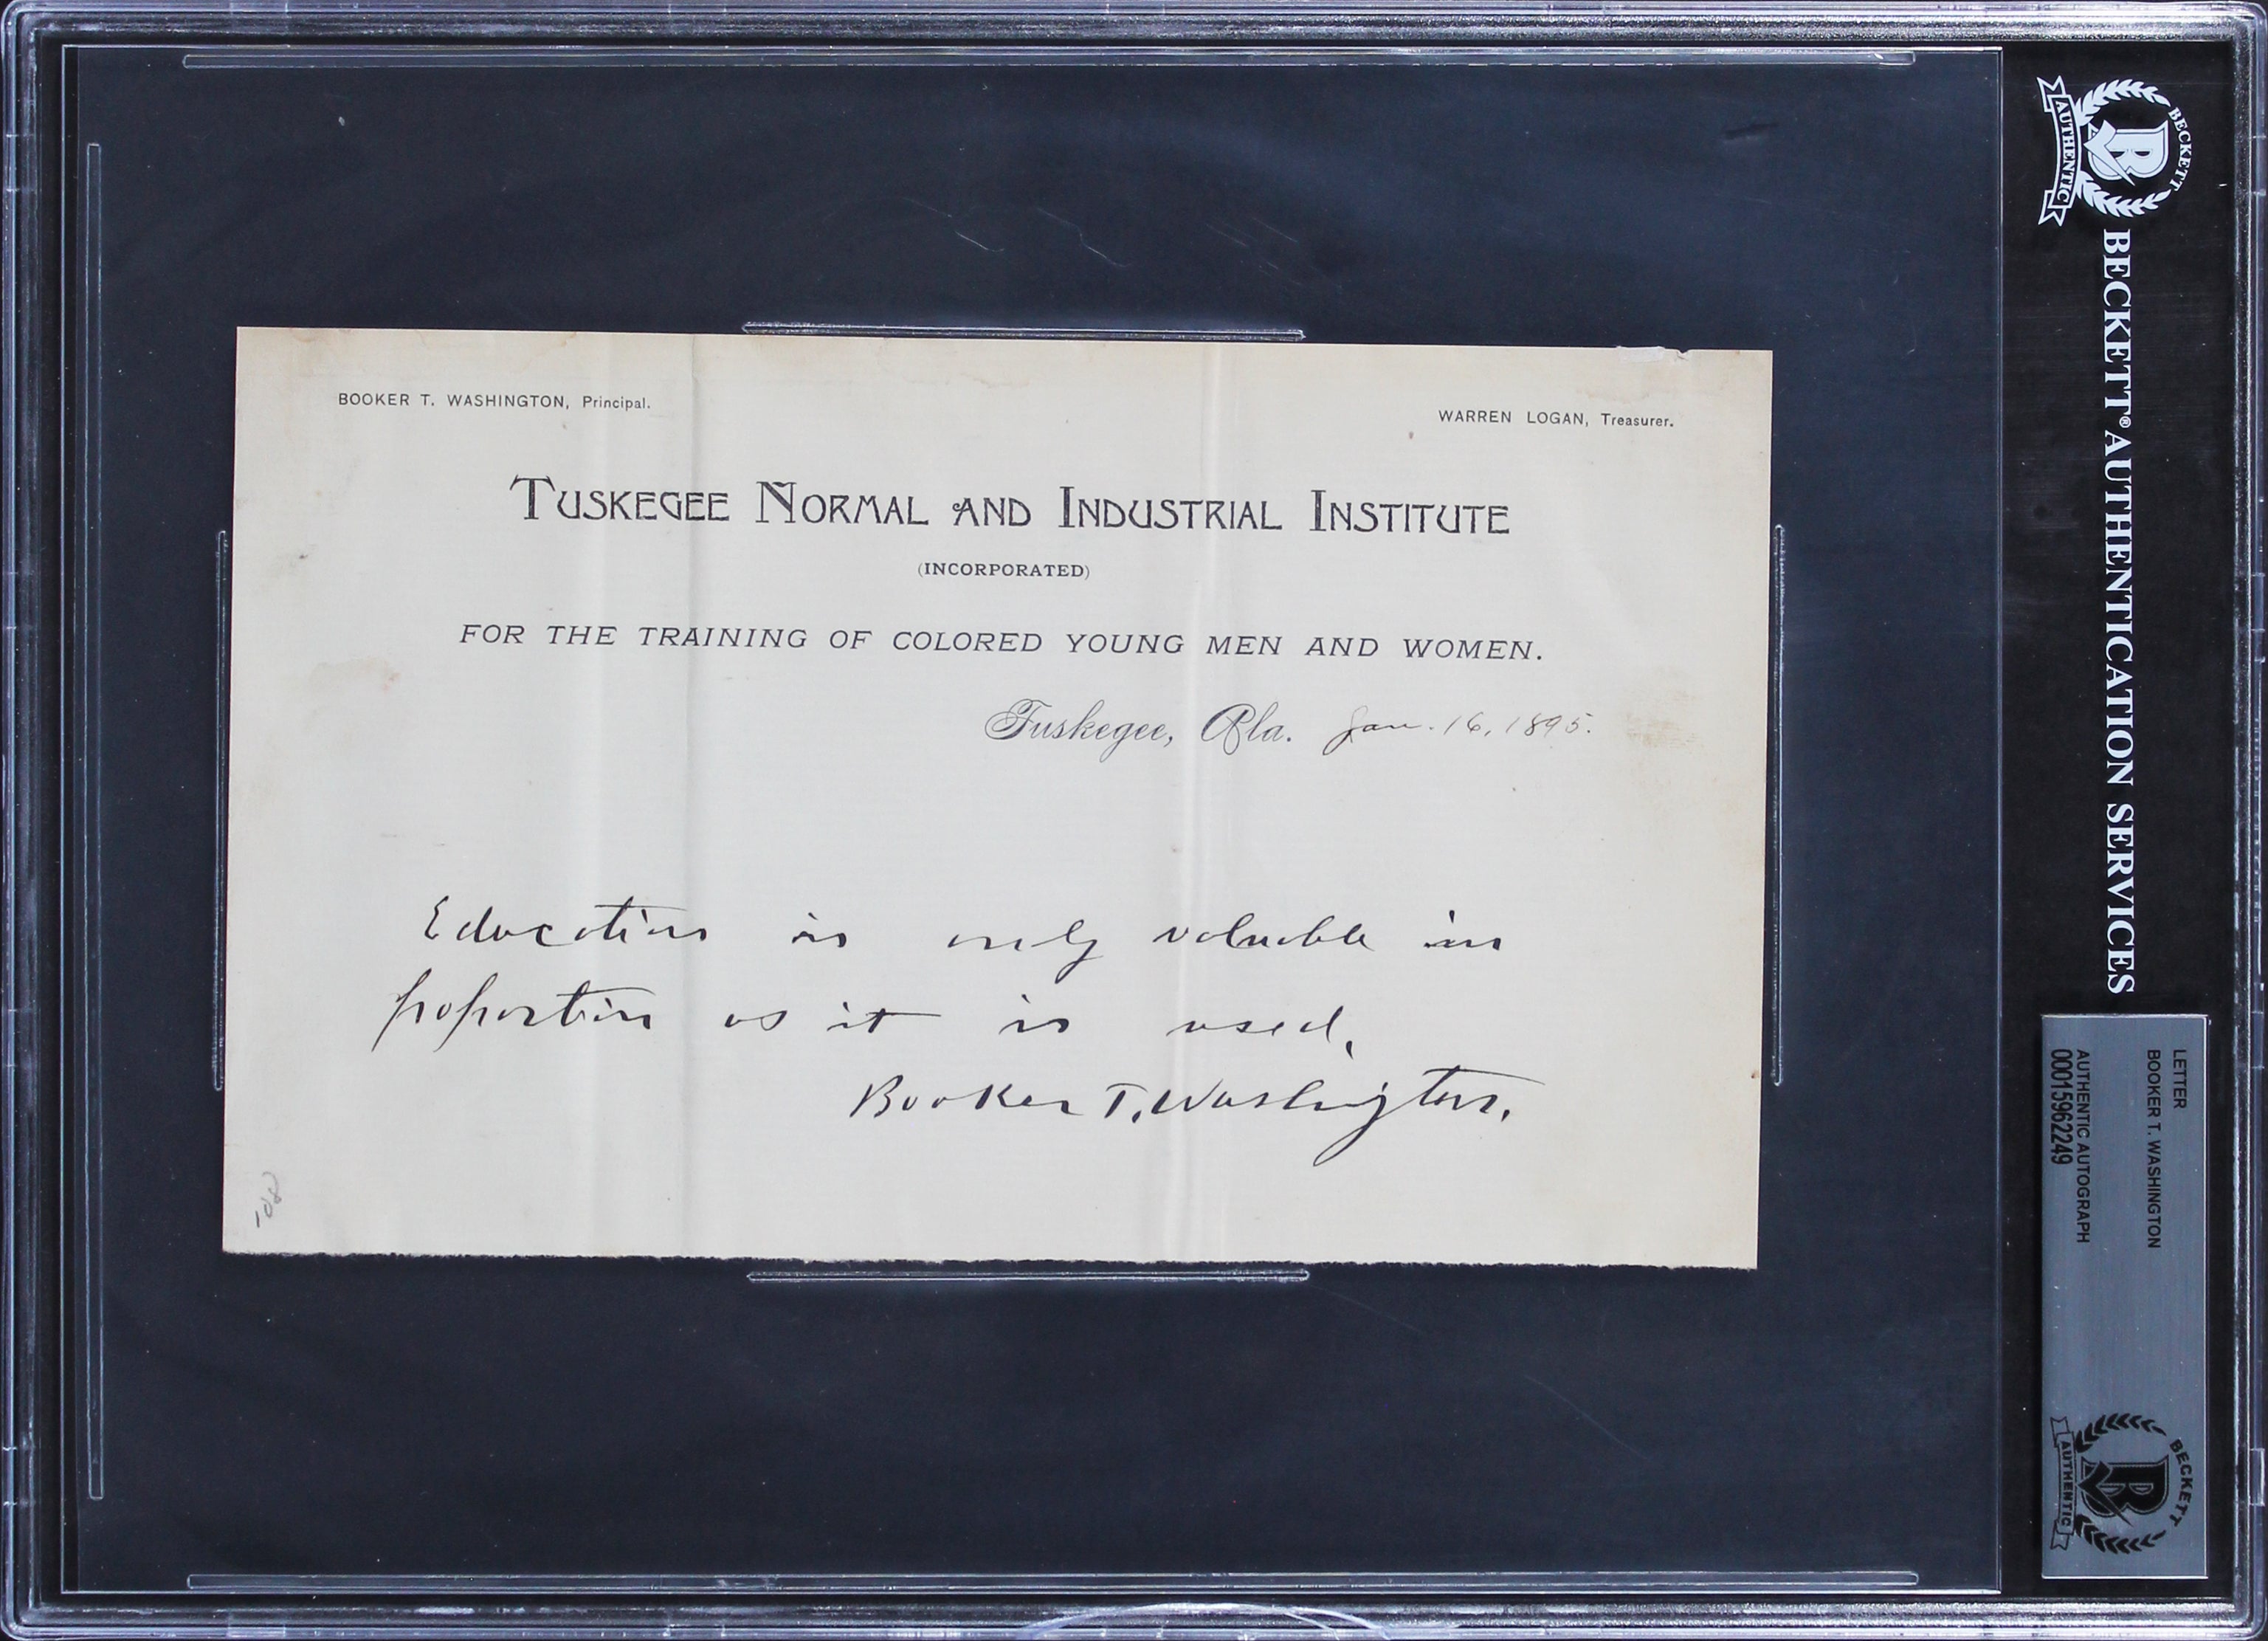 BOOKER T. WASHINGTON, Principal.
WARREN LOGAN, Treasurer.
TUSKEGEE NORMAL AND INDUSTRIAL INSTITUTE
(INCORPORATED)
FOR THE TRAINING OF COLORED YOUNG MEN AND WOMEN.
Tuskegee, Ala. Jan. 16, 1895.
Education is only valuable in
proportion as it is used.
Booker T. Washington.
BECKETT
AUTHENTIC
BECKETT® AUTHENTICATION SERVICES
LETTER
BOOKER T. WASHINGTON
AUTHENTIC AUTOGRAPH
00015962249
BECKETT
AUTHENTIC